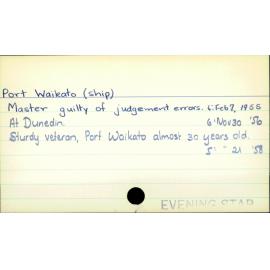 Port Waikato (ship)
Master guilty of judgement errors. 6:Feb 7, 1955
At Dunedin. 6:Nov 30 '56
Sturdy veteran, Port Waikato almost 30 years old.
5: " 21 '58
EVENING STAR